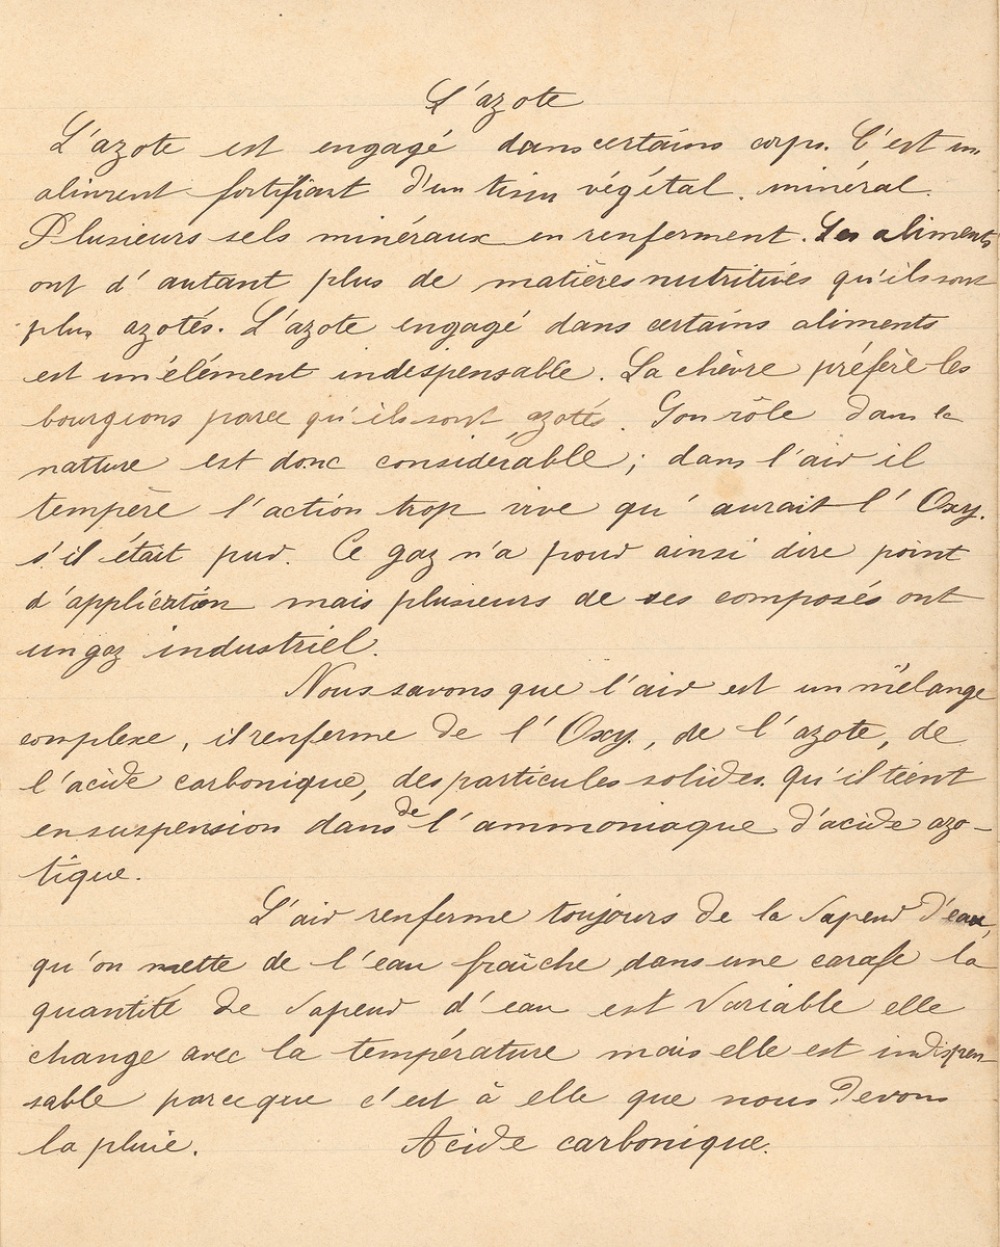 L'azote
L'azote est engagé dans certains corps. C'est un
aliment fortifiant d'un tissu végétal. minéral.
Plusieurs sels minéraux en renferment. Les aliments
ont d'autant plus de matières nutritives qu'ils sont
plus azotés. L'azote engagé dans certains aliments
est un élément indispensable. La chèvre préfère les
bourgions parce qu'ils sont azotés. Son rôle dans la
natture est donc considérable; dans l'air il
tempère l'action trop vive qu'aurait l'Oxy.
s'il était pur. Ce gaz n'a pour ainsi dire point
d'application mais plusieurs de ses composés ont
un gaz industriel.
Nous savons que l'air est un mélange
complexe, il renferme de l'Oxy., de l'azote, de
l'acide carbonique, des particules solides. qu'il tient
en suspension dans de l'ammoniaque d'acide azo-
tique.
L'air renferme toujours de la vapeur d'eau,
qu'on mette de l'eau fraîche dans une carafe la
quantité de vapeur d'eau est variable elle
change avec la température mais elle est indispen-
sable parceque c'est à elle que nous devons
la pluie. Acide carbonique.